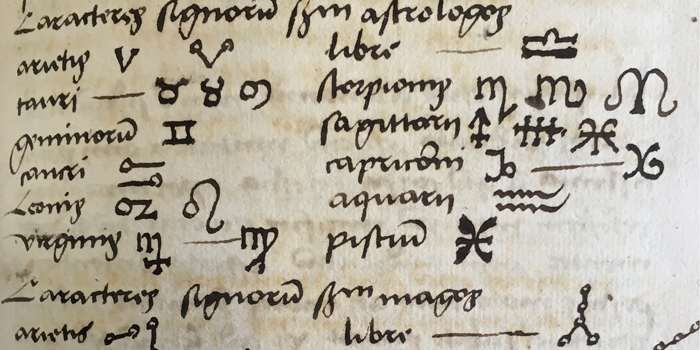 Caracteres signorū scđm astrologos
arietis ♈ libre ♎
tauri ♉ scorpionis ♏
geminorū ♊ sagittarii ♐
cancri ♋ capricorni ♑
Leonis ♌ aquarii ♒
virginis ♍ pisciū ♓
Caracteres signorū scđm magos
arietis libre